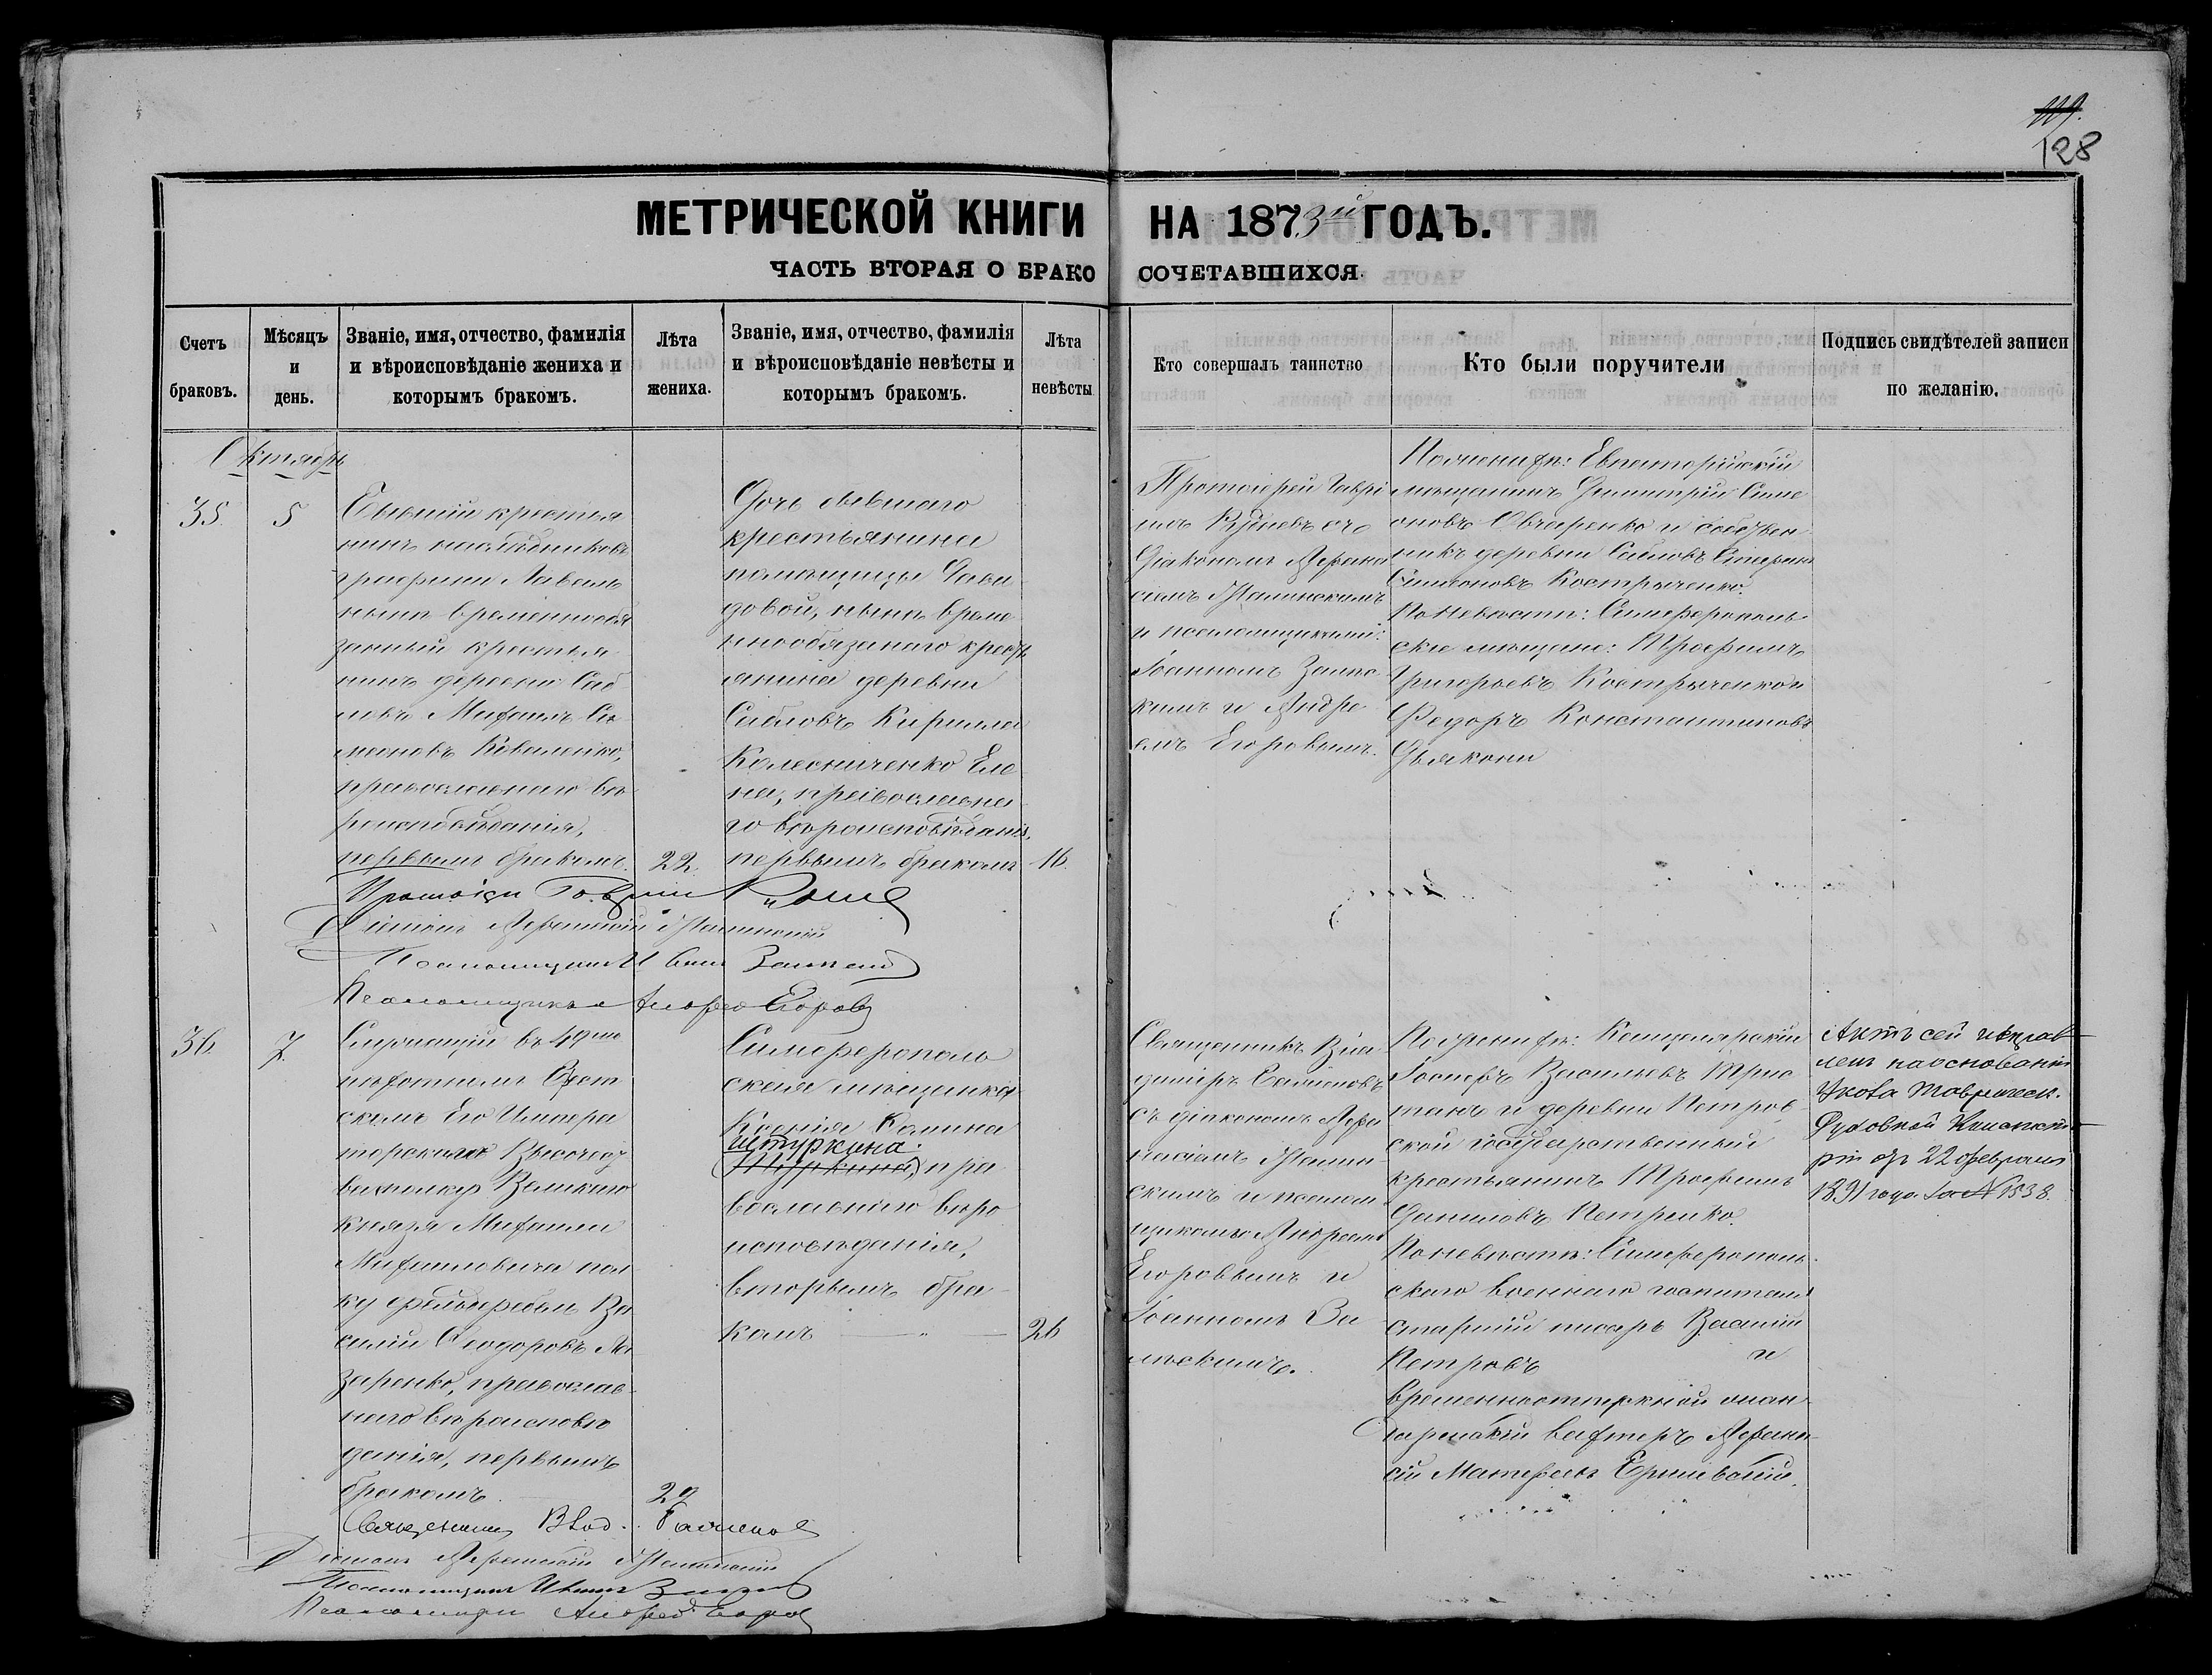 119.
128
МЕТРИЧЕСКОЙ КНИГИ НА 1873й ГОДЪ.
ЧАСТЬ ВТОРАЯ О БРАКОСОЧЕТАВШИХСЯ.
Счетъ браковъ.
Мѣсяцъ и день.
Званіе, имя, отчество, фамилія
и вѣроисповѣданіе жениха и
которымъ бракомъ.
Лѣта
жениха.
Званіе, имя, отчество, фамилія
и вѣроисповѣданіе невѣсты и
которымъ бракомъ.
Лѣта
невѣсты
Кто совершалъ таинство
Кто были поручители
Подпись свидѣтелей записи
по желанію.
Октябрь
35.
5
Бывшій крестья
нинъ наслѣдниковъ
графини Лаваль
нынѣ временнообя
занный крестья
нинъ деревни Саб
ловъ Михаилъ Си
меоновъ Коваленко,
православнаго вѣ
роисповѣданія,
первымъ бракомъ.
22.
Дочь бывшаго
крестьянина
помѣщицы Давы
довой, нынѣ време
ннообязаннаго крестъ
янина деревни
Сабловъ Кирилла
Колесниченко Еле
на, православна
го вѣроисповѣданія,
первымъ бракомъ
16.
Протоіерей Гаври
илъ съ
Діакономъ Афана
сіемъ
и псаломщиками:
Іоанномъ
и Андре
емъ Егоровымъ.
По женихѣ: Евпаторійскій
мѣщанинъ Димитрій Симе
оновъ Овчаренко и собствен
никъ деревни Сабловъ Стефанъ
Симеоновъ Костриченко.
По невѣстѣ: Симферополь
скіе мѣщане: Трофимъ
Григорьевъ Костриченко и
Федоръ Константиновъ
Дьяконъ
Діаконъ Афанасій
Псаломщикъ Иванъ
Псаломщикъ Андрей Егоровъ
36.
7.
Служащій въ 49мъ
пѣхотномъ Брест
скомъ Его Импера
торскаго Высочес
ва полку Великаго
князя Михаила
Михаиловича пол
ку фельдфебель Ва
силій Феодоровъ Ла
заренко, православ
наго вѣроисповѣ
данія, первымъ
бракомъ.
29
Симферополь
ская мѣщанка
Ксенія Фомина
Штуркина
(Штуркина), пра
вославнаго вѣро
исповѣданія,
вторымъ бра
комъ
26
Священникъ Вла
диміръ
съ діакономъ Афа
насіемъ
и псалом
щиками Андреемъ
Егоровымъ и
Іоанномъ За
По женихѣ: Канцелярскій
Іосифъ Васильевъ Трис
танъ и деревни Петров
ской государственный
крестьянинъ Трофимъ
Даниловъ Петренко.
По невѣстѣ: Симферополь
скаго военнаго госпиталя
старшій писарь Василій
Петровъ и
вахтеръ Афана
сій Матфеевъ
Актъ сей исправ
ленъ на основаніи
Указа Таврическ.
Духовной Консисто
ріи отъ 22 февраля
1891 года за № 1538.
Священникъ Влад.
Діаконъ Афанасій
Псаломщикъ Иванъ
Псаломщикъ Андрей Егоровъ